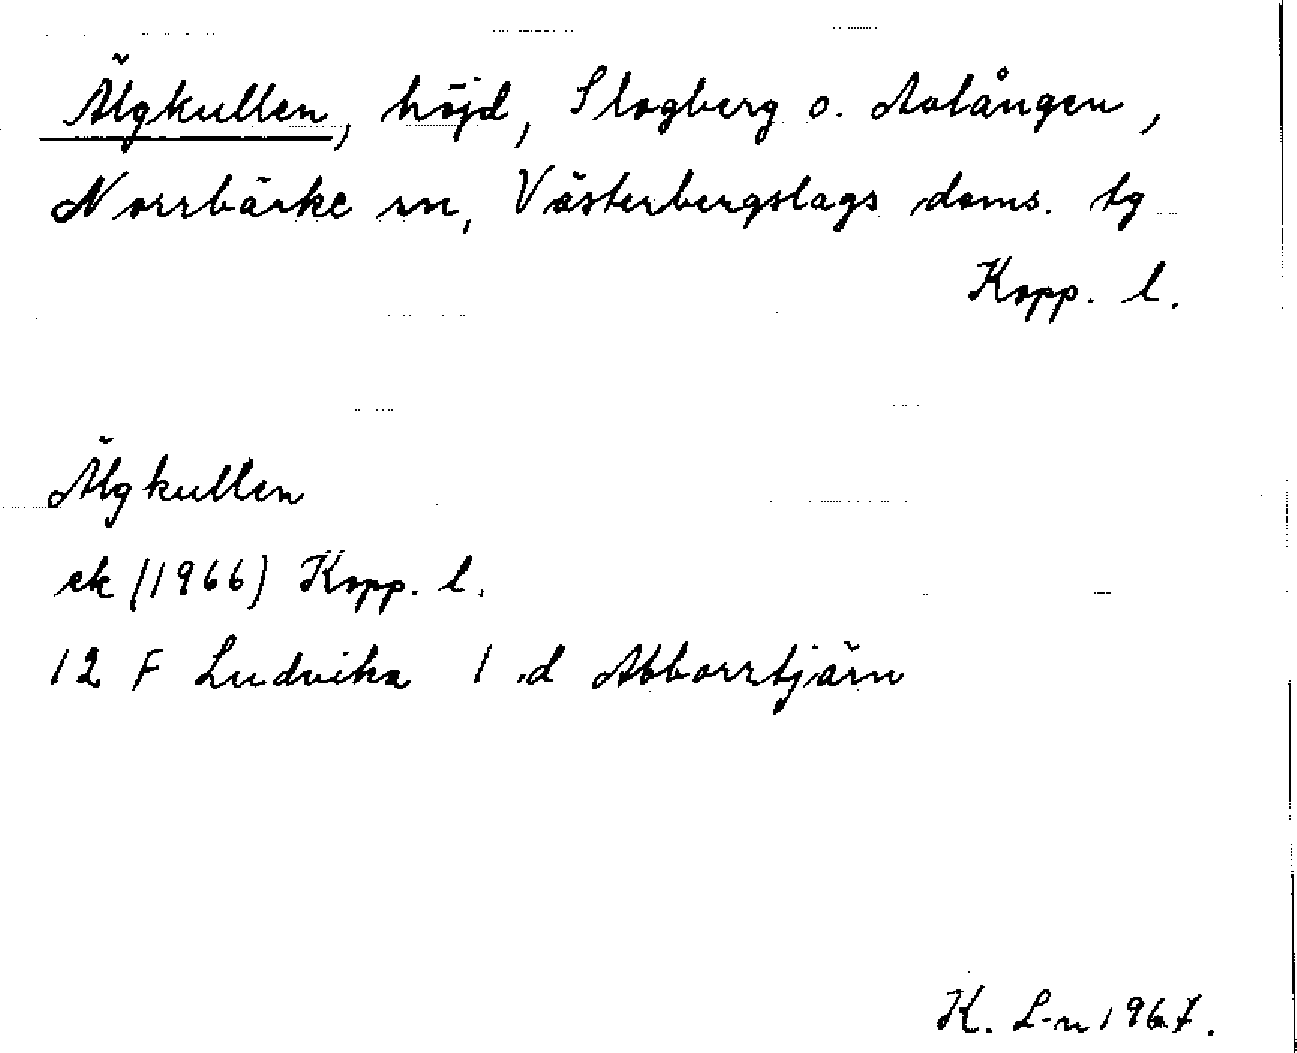 Älgkullen, höjd, Slogberg o. Aolången,
Norrbärke sn, Västerbergslags doms. tg
Kopp. l.
Älgkullen
ek (1966) Kopp. l.
12 F Ludvika 1 d Abborrtjärn
K. L-n 1967.